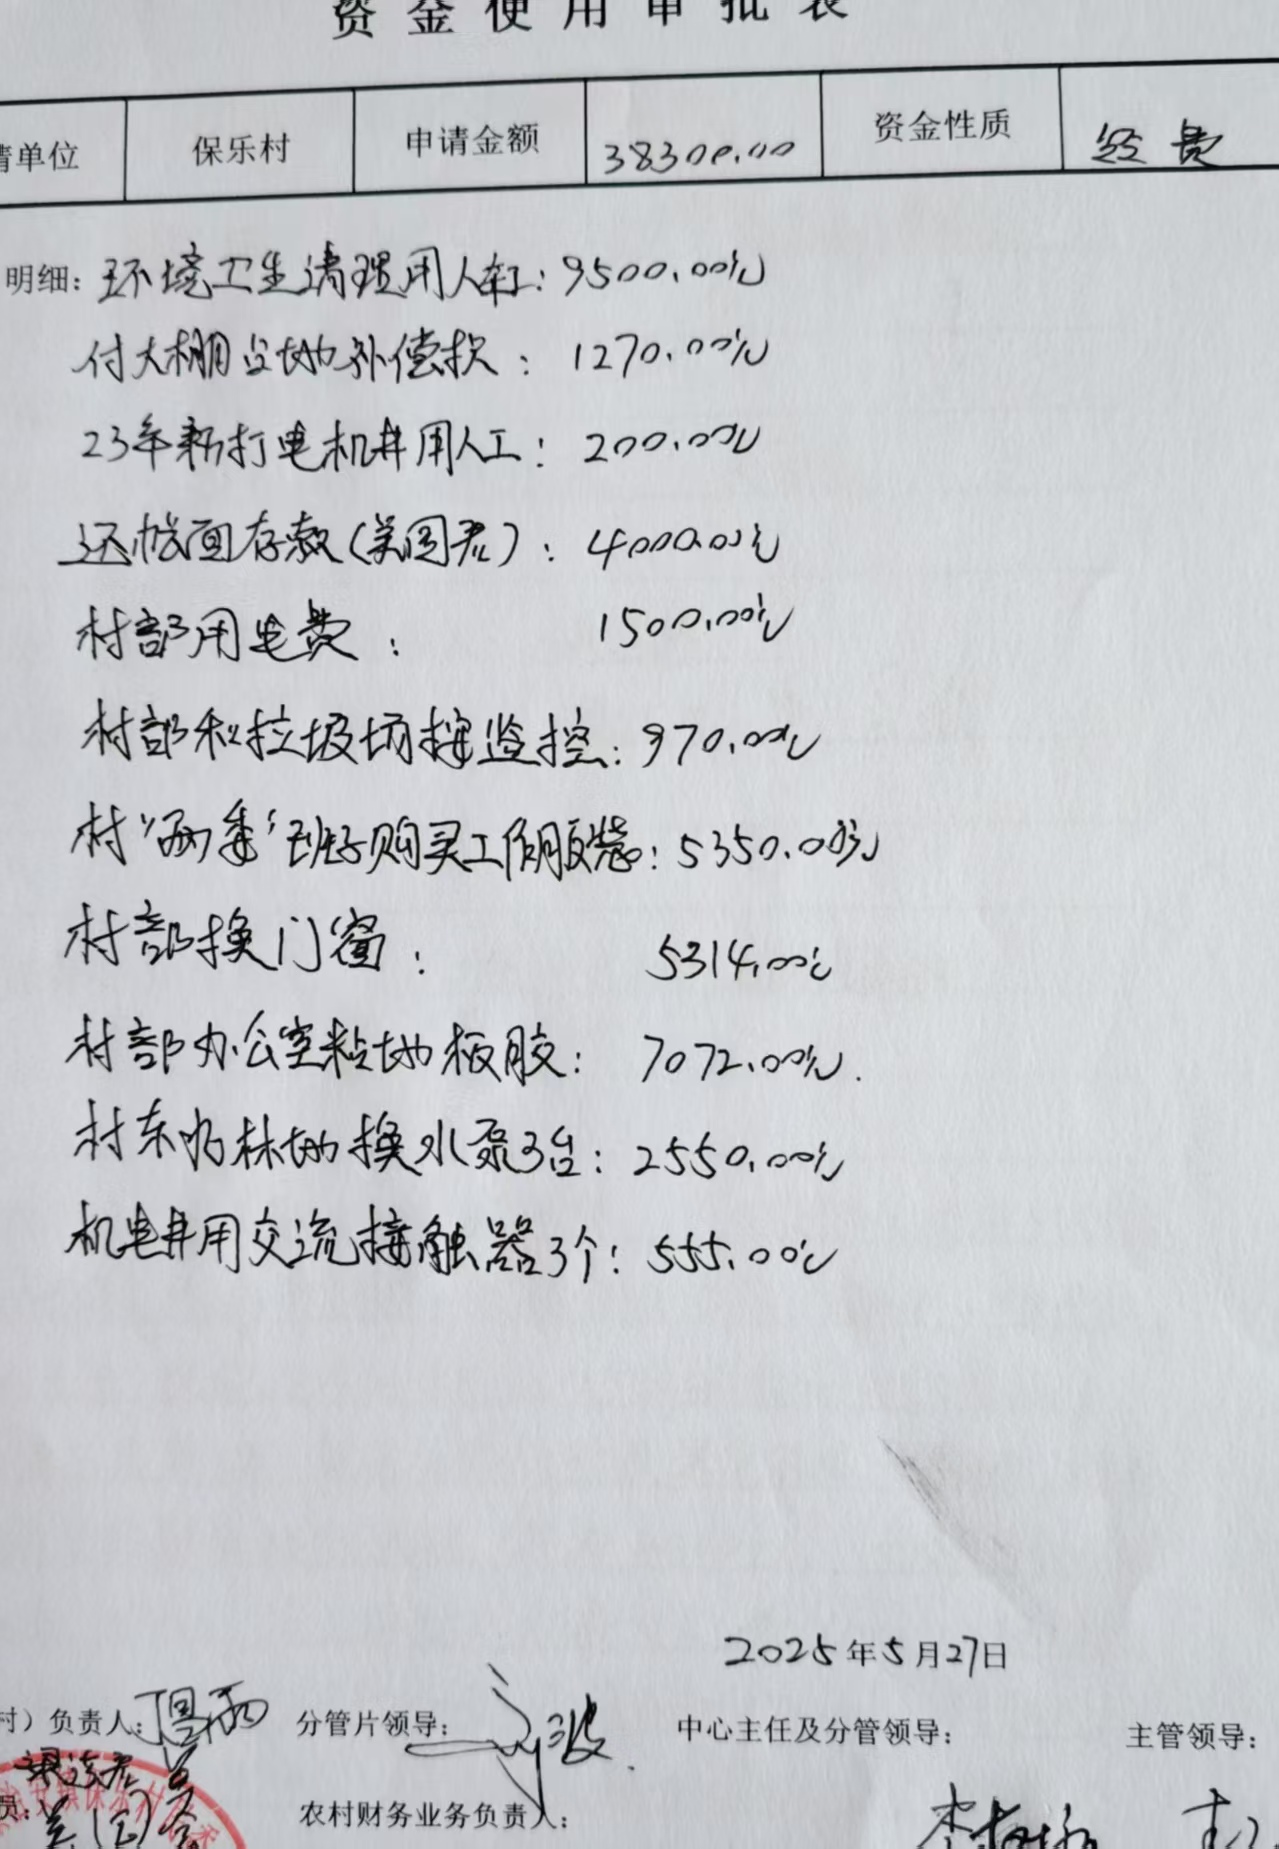 资金使用审批表
请单位 保乐村 申请金额 38300.00 资金性质 经费
明细: 环境卫生清理用人车工: 9500.00元
付大棚占地补偿款: 1270.00元
23年新打电机井用人工: 200.00元
还帐面存款(关国君): 4000.00元
村部用电费: 1500.00元
村部和垃圾场按监控: 970.00元
村"两委"班子购买工作服装: 5350.00元
村部换门窗: 5314.00元
村部办公室粘地板胶: 7072.00元
村东 林地换水泵3台: 2550.00元
机电井用交流接触器3个: 555.00元
2025年5月27日
村）负责人: 分管片领导: 中心主任及分管领导: 主管领导:
员: 农村财务业务负责人: